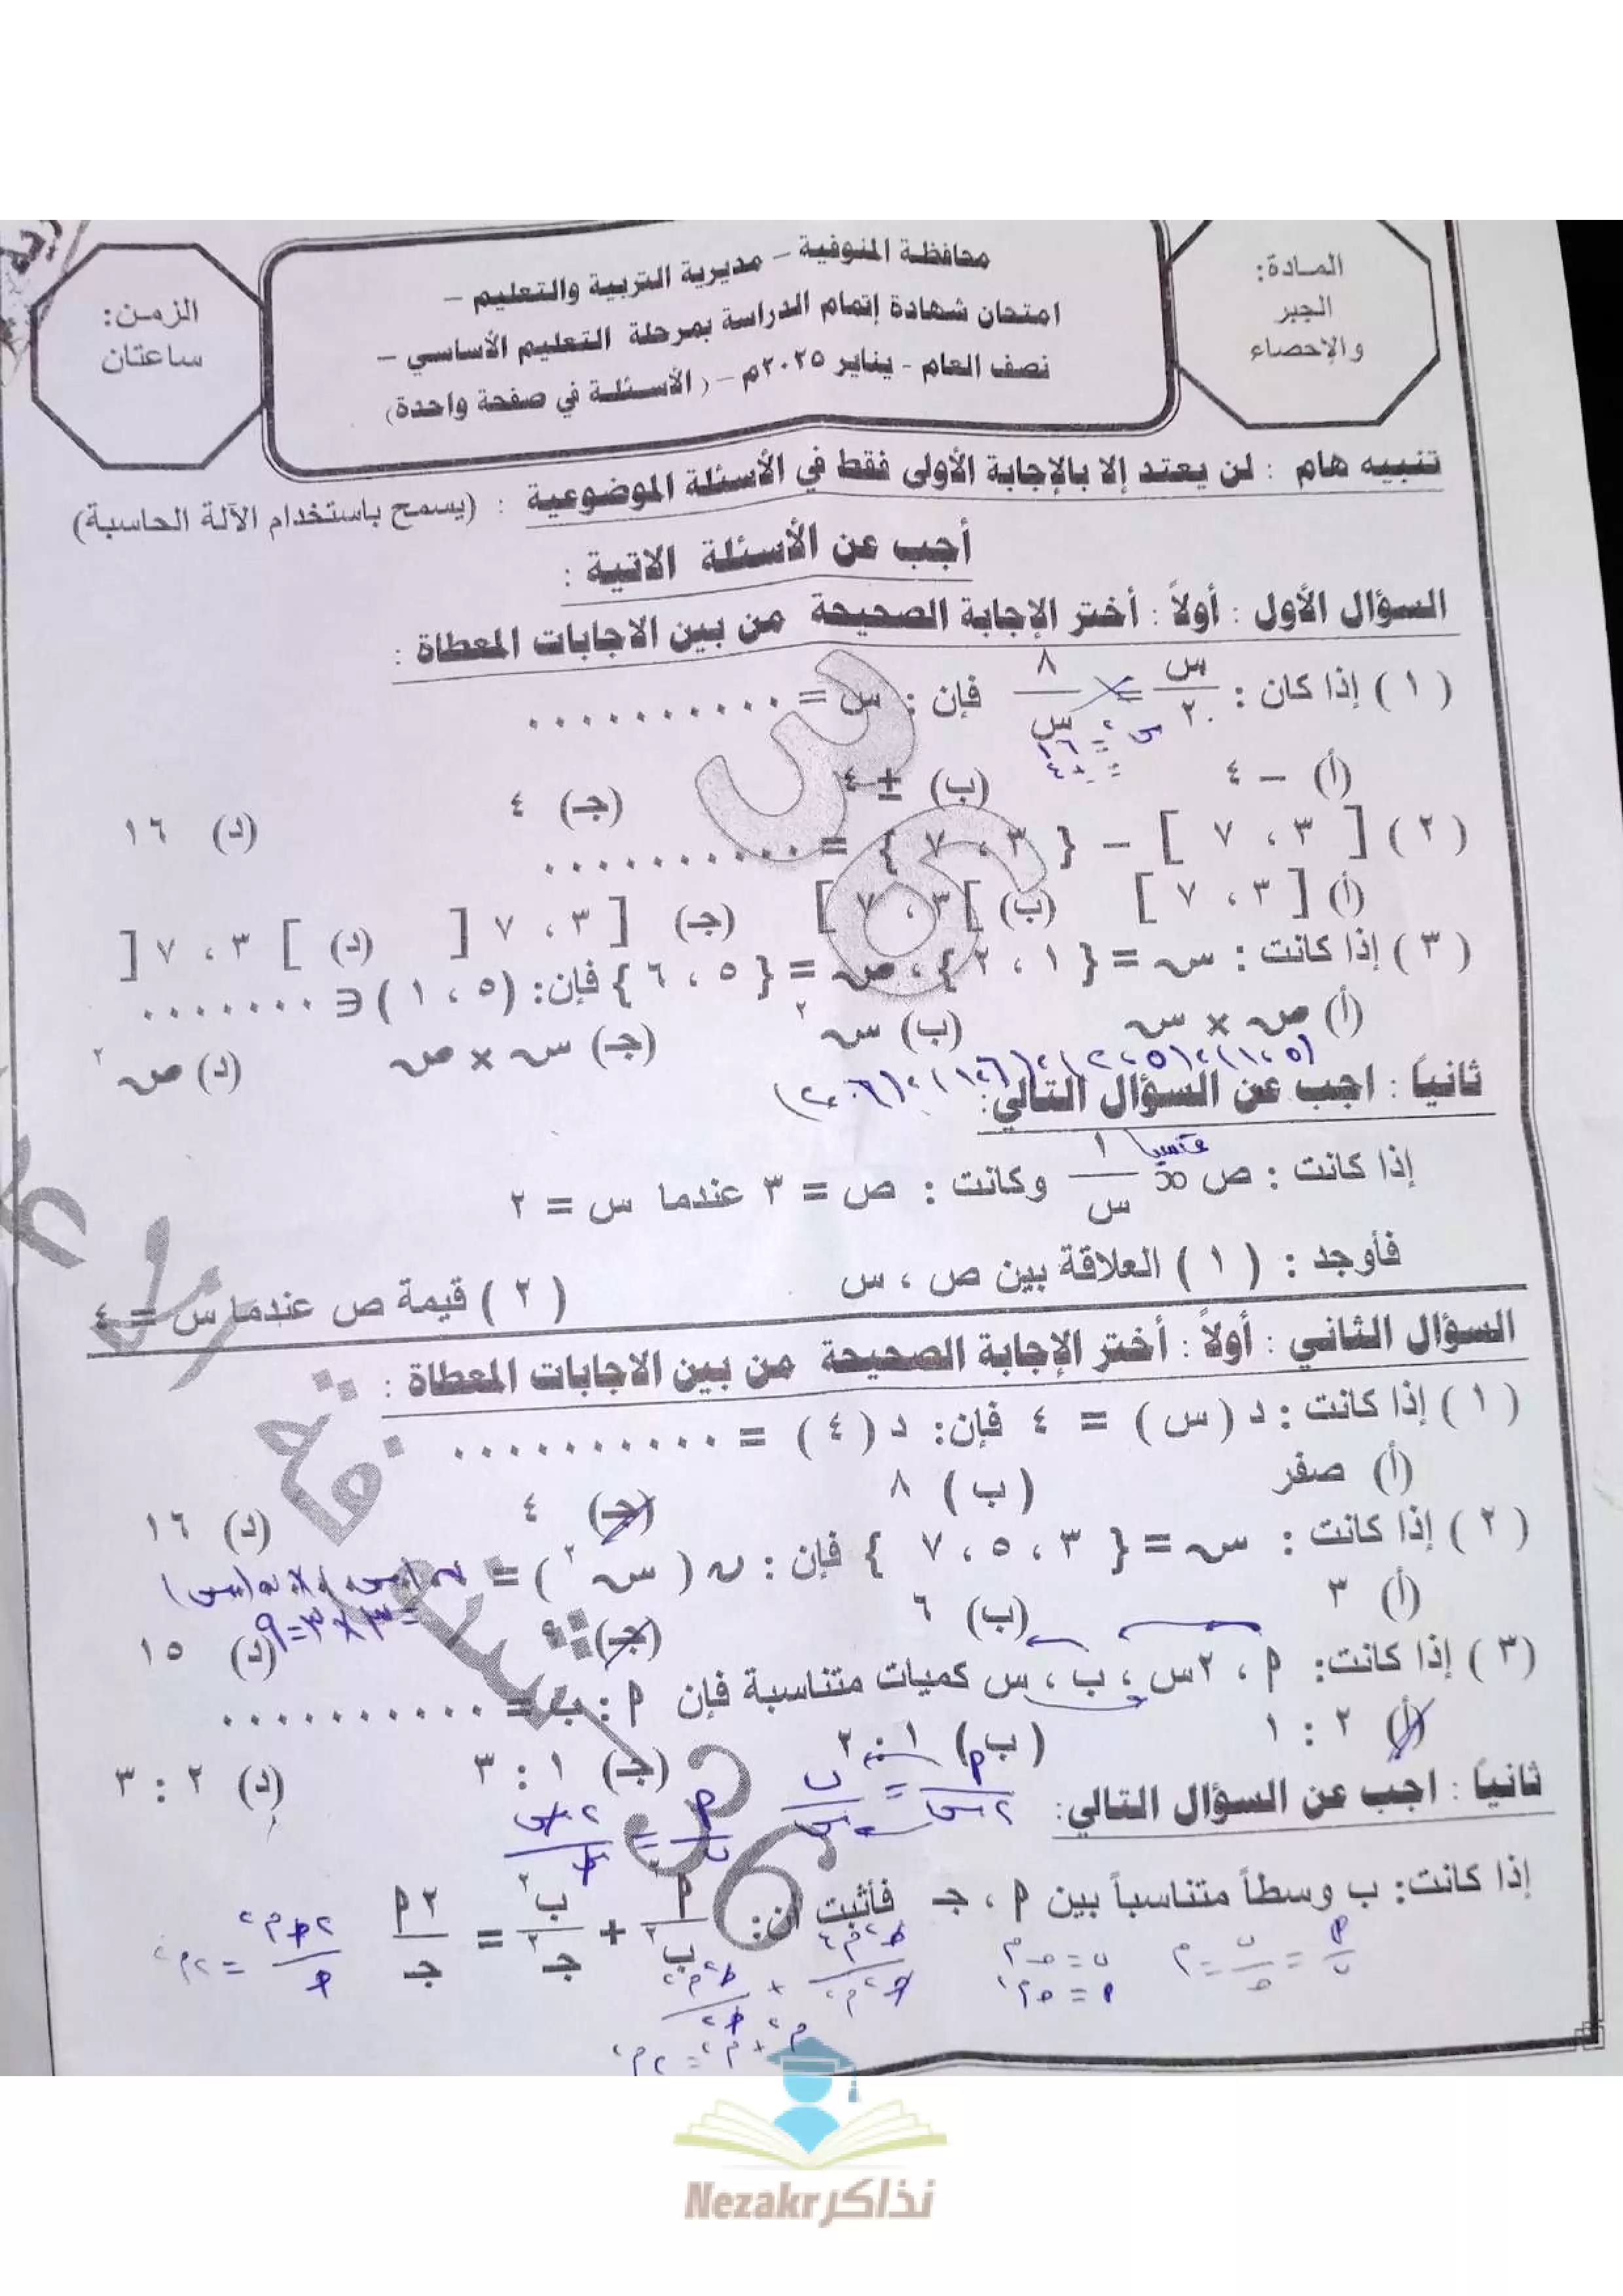 المادة:
الجبر
والإحصاء
محافظة المنوفية – مديرية التربية والتعليم –
امتحان شهادة إتمام الدراسة بمرحلة التعليم الأساسي –
نصف العام - يناير ٢٠٢٥م – (الأسئلة في صفحة واحدة)
الزمن:
ساعتان
تنبيه هام : لن يعتد إلا بالإجابة الأولى فقط في الأسئلة الموضوعية : (يسمح باستخدام الآلة الحاسبة)
أجب عن الأسئلة الاتية :
السؤال الأول : أولاً : أختر الإجابة الصحيحة من بين الاجابات المعطاة :
( ١ ) إذا كان : س/٢٠ = ٨/س فإن : س = ..........
(أ) – ٤ (ب) ± ٤ (جـ) ٤ (د) ١٦
( ٢ ) [ ٣ ، ٧ ] – { ٣ ، ٧ } = ..........
(أ) [ ٣ ، ٧ ] (ب) ] ٣ ، ٧ ] (جـ) [ ٣ ، ٧ [ (د) ] ٣ ، ٧ [
( ٣ ) إذا كانت : س = { ١ ، ٢ } ، ص = { ٥ ، ٦ } فإن: (٥ ، ١ ) ∈ .......
(أ) ص × س (ب) س٢ (جـ) س × ص (د) ص٢
ثانياً : اجب عن السؤال التالي:
إذا كانت : ص ∝ ١/س وكانت : ص = ٣ عندما س = ٢
فأوجد : ( ١ ) العلاقة بين ص ، س ( ٢ ) قيمة ص عندما س = ٤
السؤال الثاني : أولاً : أختر الإجابة الصحيحة من بين الاجابات المعطاة :
( ١ ) إذا كانت : د ( س ) = ٤ فإن: د ( ٤ ) = ..........
(أ) صفر ( ب ) ٨ (جـ) ٤ (د) ١٦
( ٢ ) إذا كانت : س = { ٣ ، ٥ ، ٧ } فإن : ن ( س٢ ) =
= ٣ × ٣ = ٩
(أ) ٣ (ب) ٦ (جـ) ٩ (د) ١٥
(٣ ) إذا كانت: م ، ٢س ، ب ، س كميات متناسبة فإن م : ب = ..........
(أ) ٢ : ١ ( ب ) ١ : ٢ (جـ) ١ : ٣ (د) ٢ : ٣
ثانياً : اجب عن السؤال التالي:
إذا كانت: ب وسطاً متناسباً بين م ، جـ فأثبت أن: م٢/ب٢ + ب٢/جـ٢ = ٢م/جـ
Nezakr نذاكر